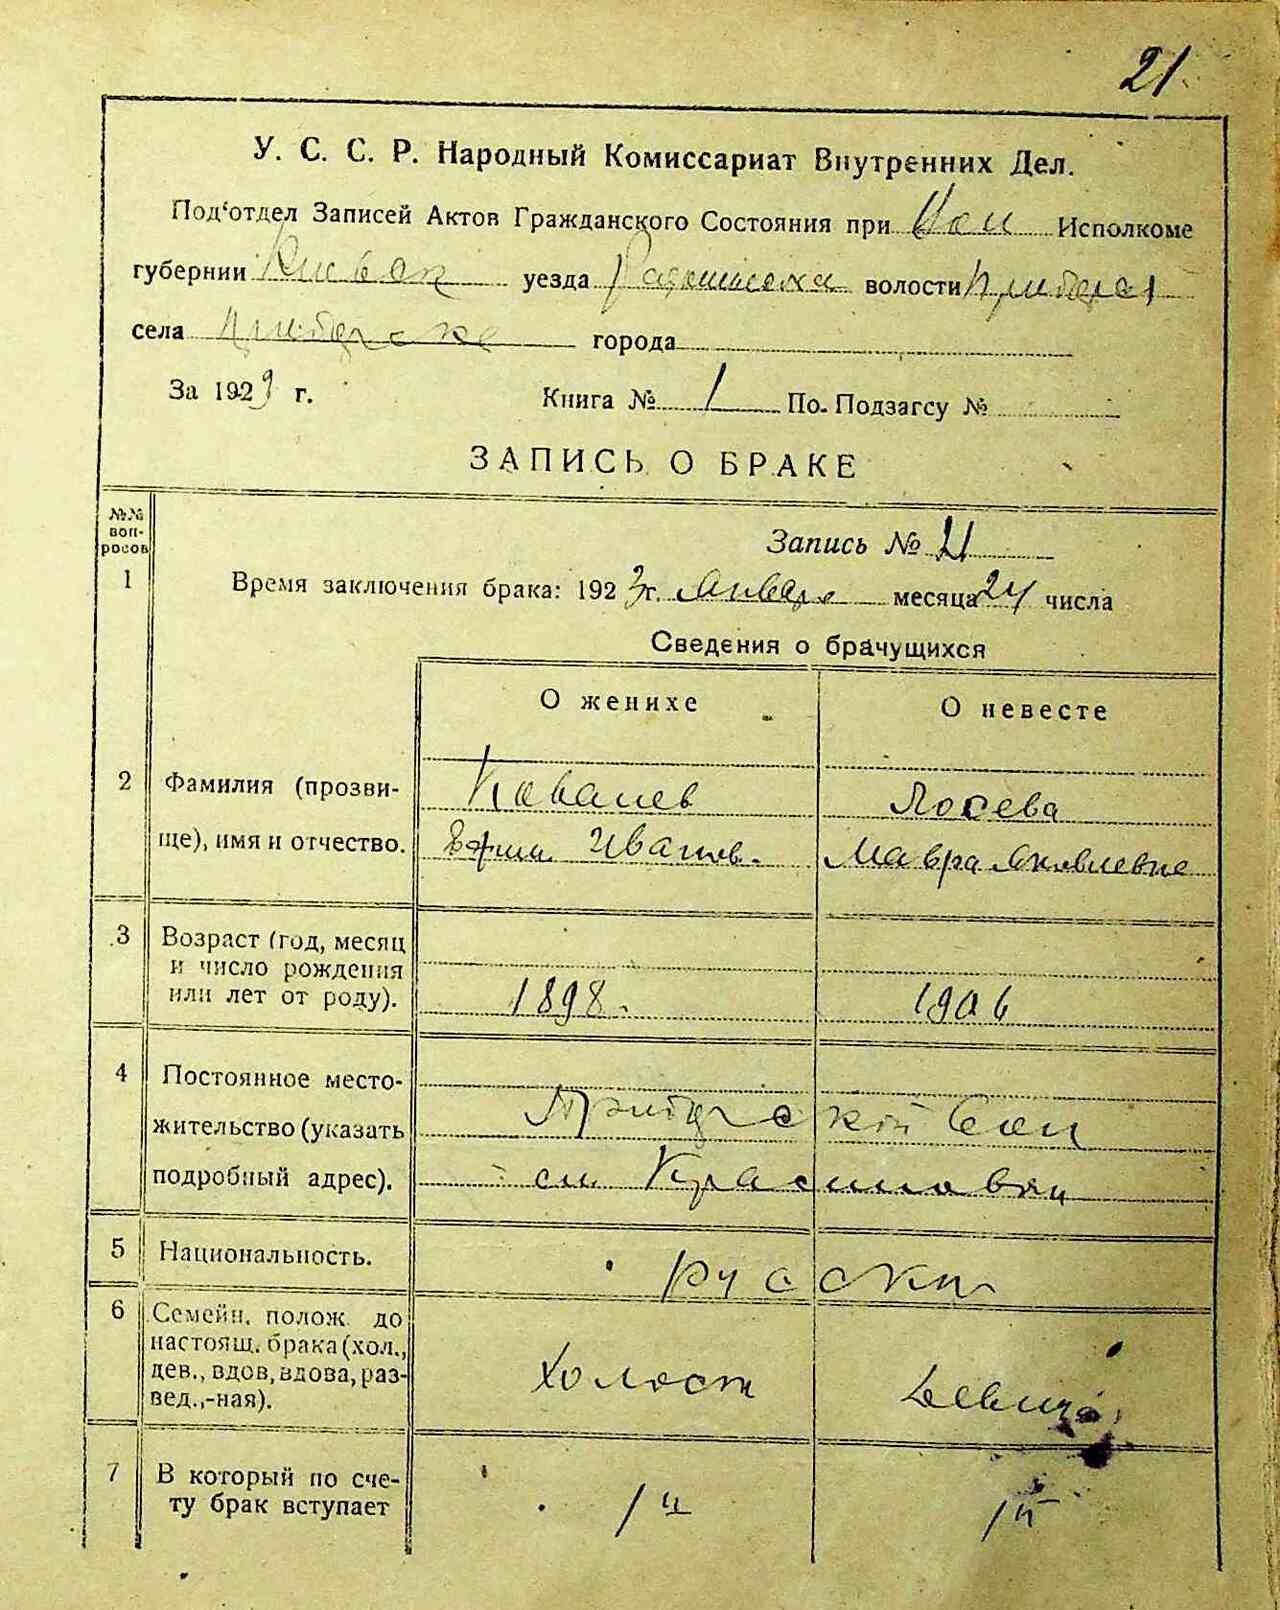 21
У. С. С. Р. Народный Комиссариат Внутренних Дел.
Под‘отдел Записей Актов Гражданского Состояния при Исполкоме
губернии Киевск уезда волости
села города
За 1923 г. Книга № 1 По. Подзагсу №
ЗАПИСЬ О БРАКЕ
№№ воп-росов
Запись № 21
1 Время заключения брака: 1923г. Января месяца 24 числа
Сведения о брачущихся
О женихе О невесте
2 Фамилия (прозви- Ковалев Лосева
ще), имя и отчество. Иванов. Мавра Яковлевна
3 Возраст (год, месяц
и число рождения
или лет от роду). 1898. 1906
4 Постоянное место-
жительство (указать
подробный адрес).
5 Национальность. русски
6 Семейн. полож. до
настоящ. брака (хол.,
дев., вдов, вдова, раз- холост девица
вед.,-ная).
7 В который по сче-
ту брак вступает 1й 1й